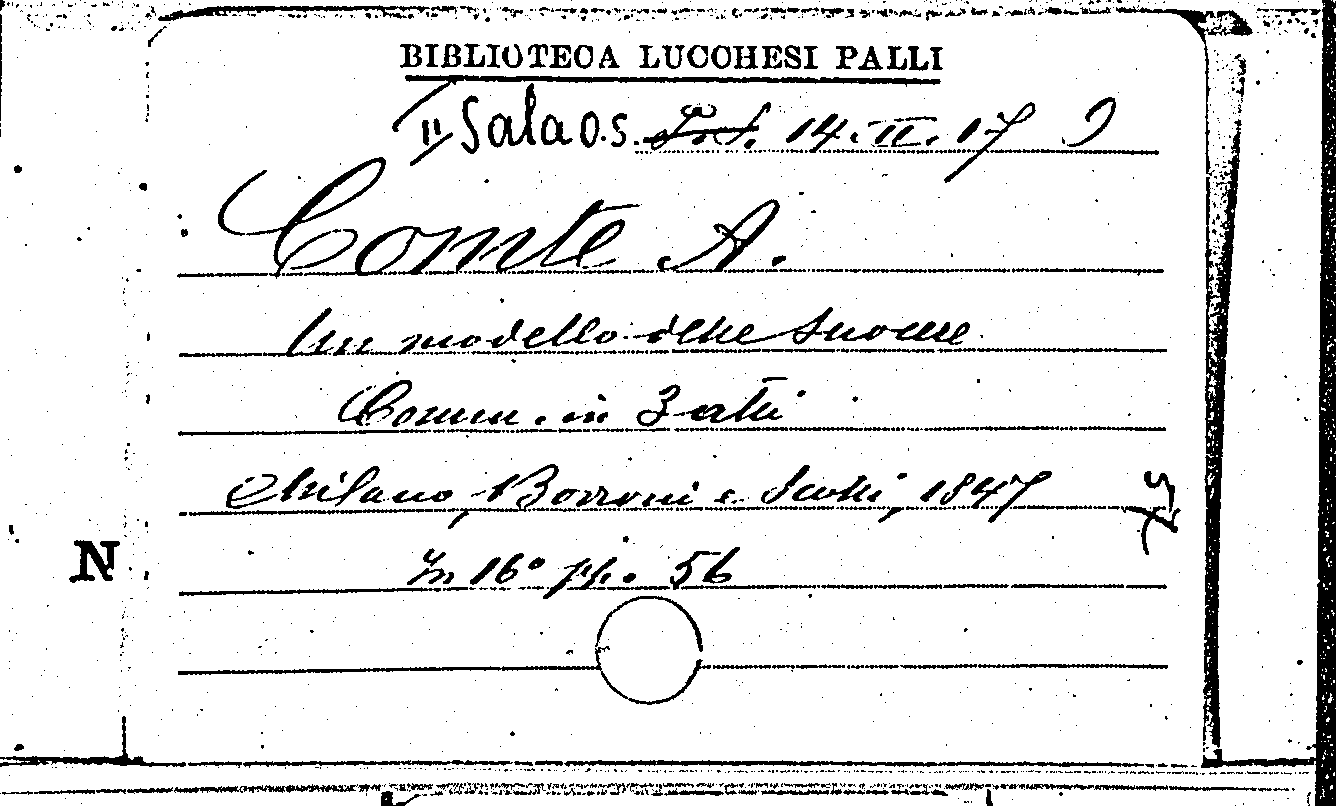 BIBLIOTECA LUCCHESI PALLI
II Sala O.S. 14. II. 17
Comte A.
Un modello delle suocere
Comm. in 3 atti
Milano, Borroni e Scotti, 1847
In 16° pp. 56
N